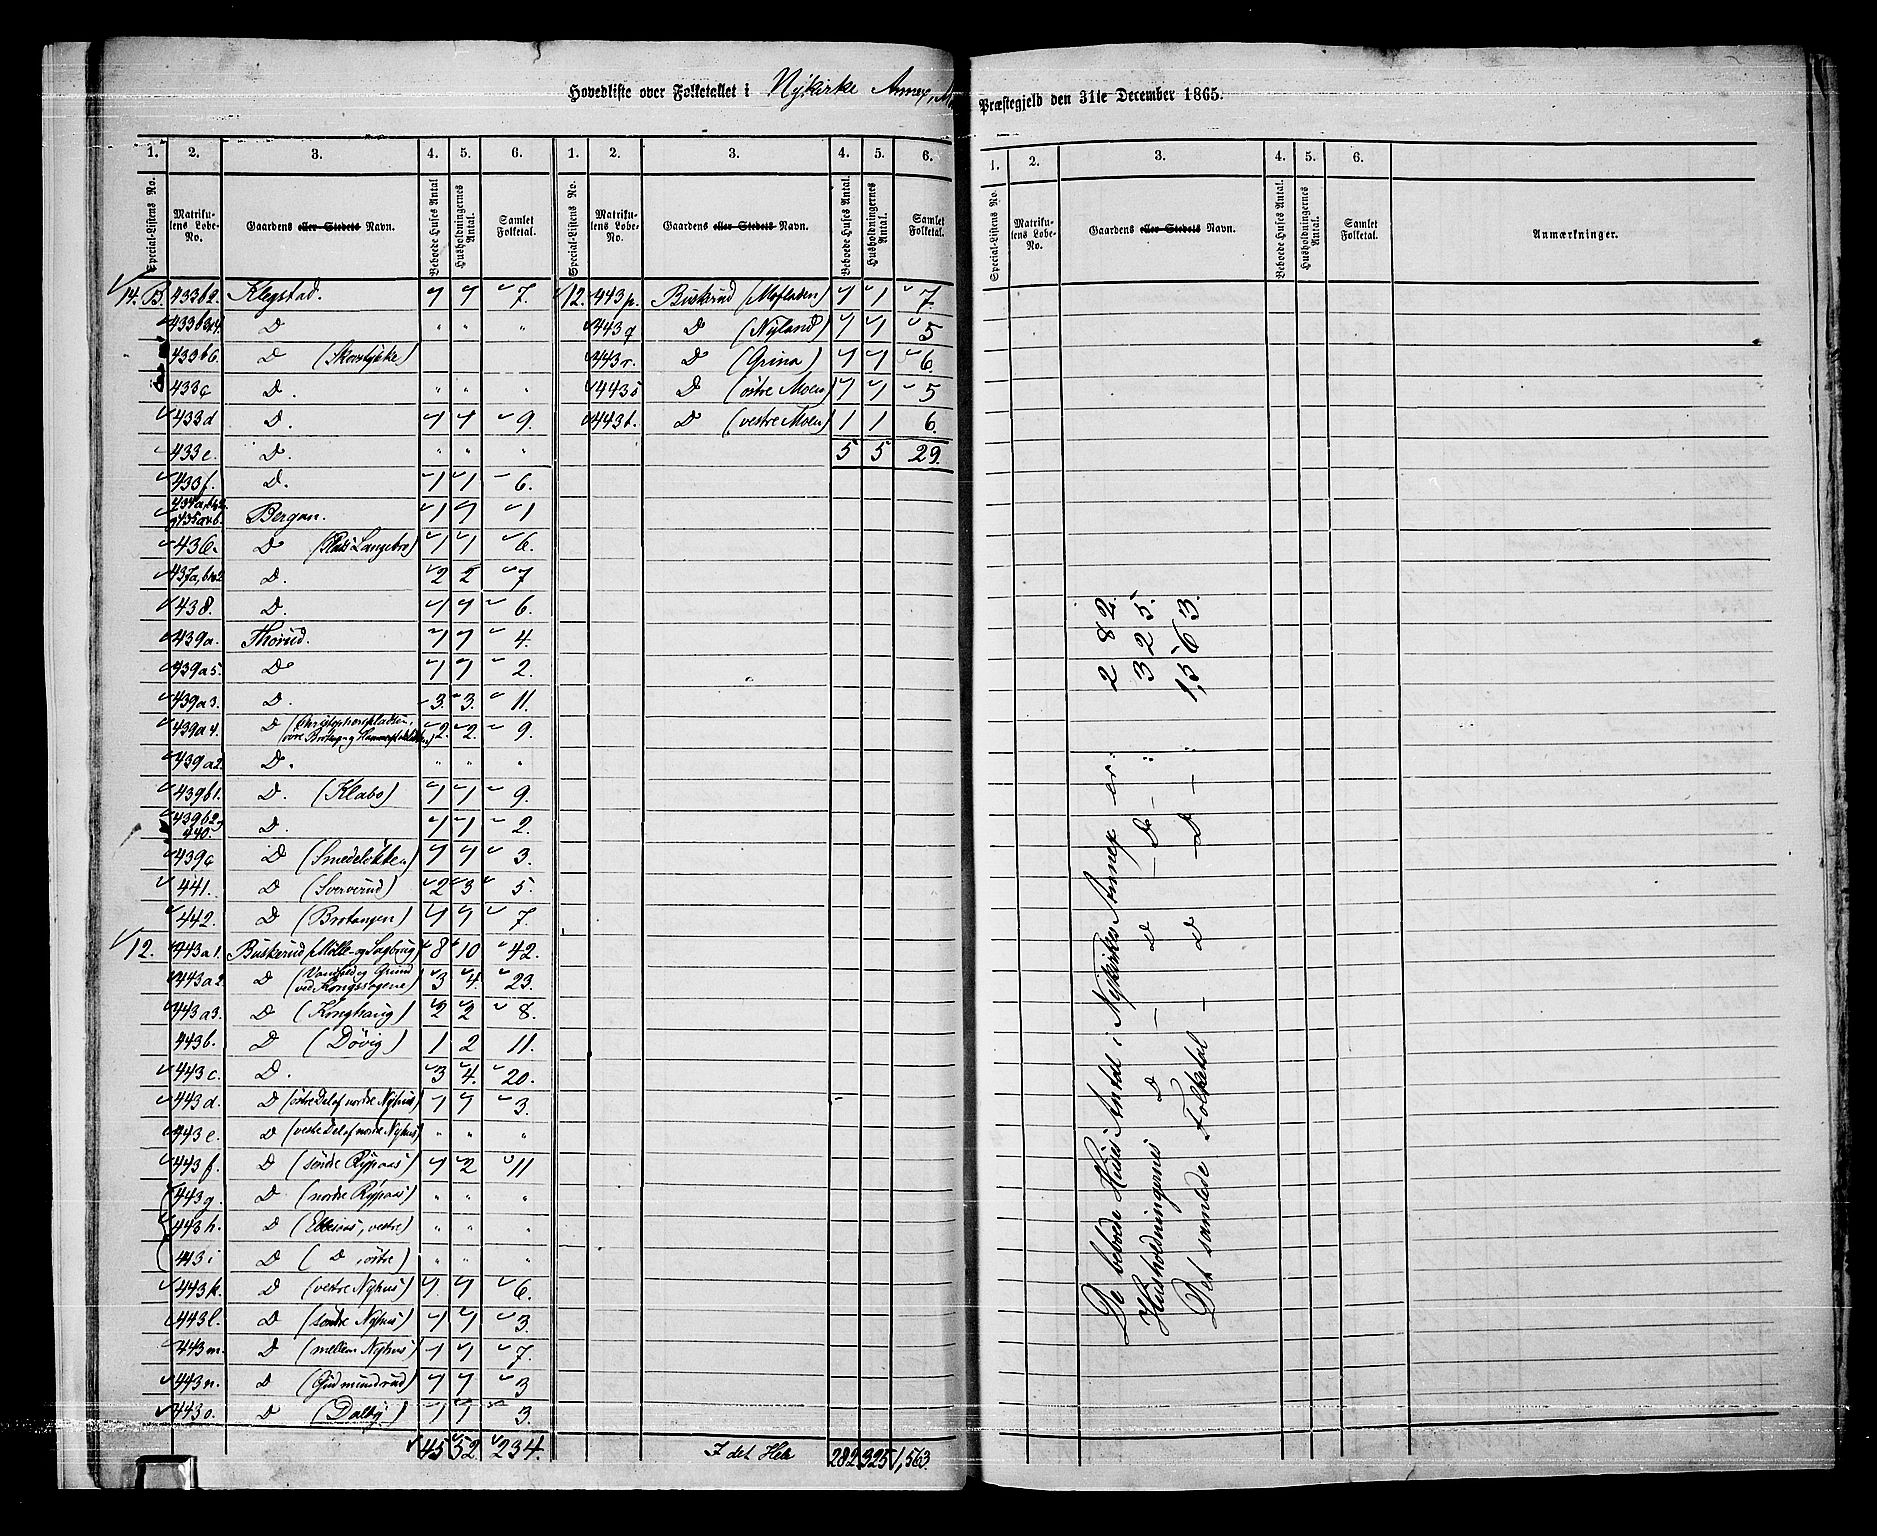 Hovedliste over Folketallet i Nykirke Annex,
Præstegjeld den 31te December 1865.
1. 2. 3. 4. 5. 6. 1. 2. 3. 4. 5. 6.
Special-Listens No. Matrikulens Løbe-No. Gaardens eller Stedets Navn. Beboede Huses Antal Husholdningernes Antal. Samlet Folketal. Special-Listens No. Matrikulens Løbe-No. Gaardens eller Stedets Navn. Beboede Huses Antal. Husholdningernes Antal. Samlet Folketal.
14. B. 433b2. Klegstad. 1 1 7.
433b3&4. D " " "
433b6. D (Skovstykke)
433c D. " " "
433d D. 1 1 9.
433e. D. " " "
433f. D. 1 1 6.
434a,b1,2 og 435a&b. Bergan. 1 1 1
436. D (Plads Langebro) 1 1 6.
437a, b1&2 D. 2 2 7
438. D. 1 1 6.
439a. Thorud. 1 1 4.
439a5. D 1 1 2.
439a3. D. 3. 3. 11.
439a4. D (Christopherspladsen, 2 2 9.
439a2. D. " " "
439b1. D. (Klabo) 1 1 9.
439b2 og 440. D. 1 1 2.
439c D (Smedeløkken) 1 1 3.
441. D (Sververud) 2 3 5.
442. D (Brotangen) 1 1 7.
12. 443a1. Buskerud (Mølle- og Sagbrug) 8 10 42.
443a2. D (Vandfald og Grund ved Kongssagene) 3 4. 23.
443a3. D (Konghaug) 2 2 8.
443b. D (Døvig) 1 2 11.
443c. D. 3 4. 20.
443d. D (østre Del af nordre Nyhus) 1 1 3.
443e. D (vestre Del af nordre Nyhus) " " "
443f. D (søndre Rypaas) 1 2 11
443g. D (nordre Rypaas) " " "
443h. D (Ellesaas, vestre) " " "
443i D (D, østre) " " "
443k. D (vestre Nyhus) 1 1 6.
443l. D (søndre Nyhus) 1 1 3.
443m. D (mellem Nyhus) 1 1 7.
443n. D (Gudmundrud) 1 1 3
443o. D (Dalby) 1 1 3.
45 52. 234.
12. 443p. Buskerud (Mofladen) 1 1 7.
443q D (Nyland) 1 1 5
443r. D (Grina) 1 1 6.
443s D (østre Moen) 1 1 5
443t. D (vestre Moen) 1 1 6.
5 5 29.
I det Hele 282 325 1,563.
1. 2. 3. 4. 5. 6.
Special-Listens No. Matrikulens Løbe-No. Gaardens eller Stedets Navn. Beboede Huses Antal. Husholdningernes Antal. Samlet Folketal. Anmærkninger.
De beboede Huses Antal i Nykirkes Annex er: 282.
Husholdningernes D — D — D — : 325.
Det samlede Folketal — D — D — : 1,563.